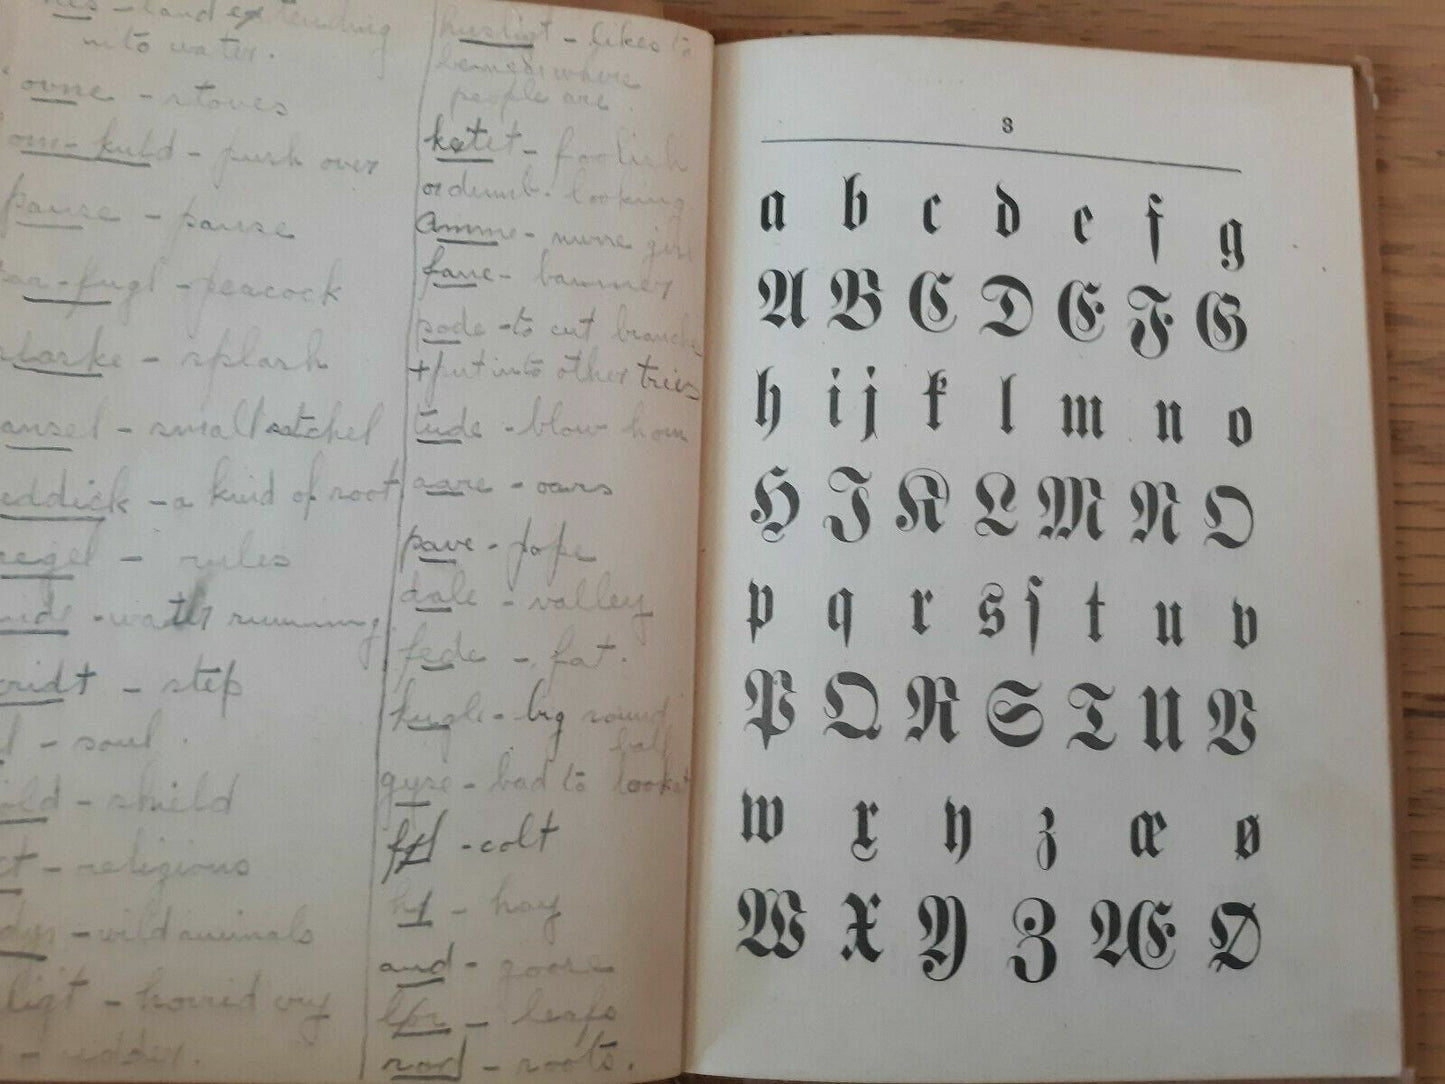 into water.
ovne - stoves
om-kuld - push over
pause - pause
fugl - peacock
- splash
- small satchel
- a kind of root
regel - rules
- water running
- step
- soul.
- shield
- religious
- wild animals
- horrid
- udder.
- likes to
people are.
- foolish
or dumb-looking
Amme - nurse girl
fane - banner
pode - to cut branches
+ put into other tries
tude - blow horn
aare - oars
pave - pope
dale - valley
fede - fat.
kugle - big round
ball
gyse - bad to look at
føl - colt
hø - hay
and - goose
løv - leafs
rod - roots.
8
a b c d e f g
A B C D E F G
h i j k l m n o
H I K L M N O
p q r s ſ t u v
P Q R S T U V
w x y z æ ø
W X Y Z Æ Ø